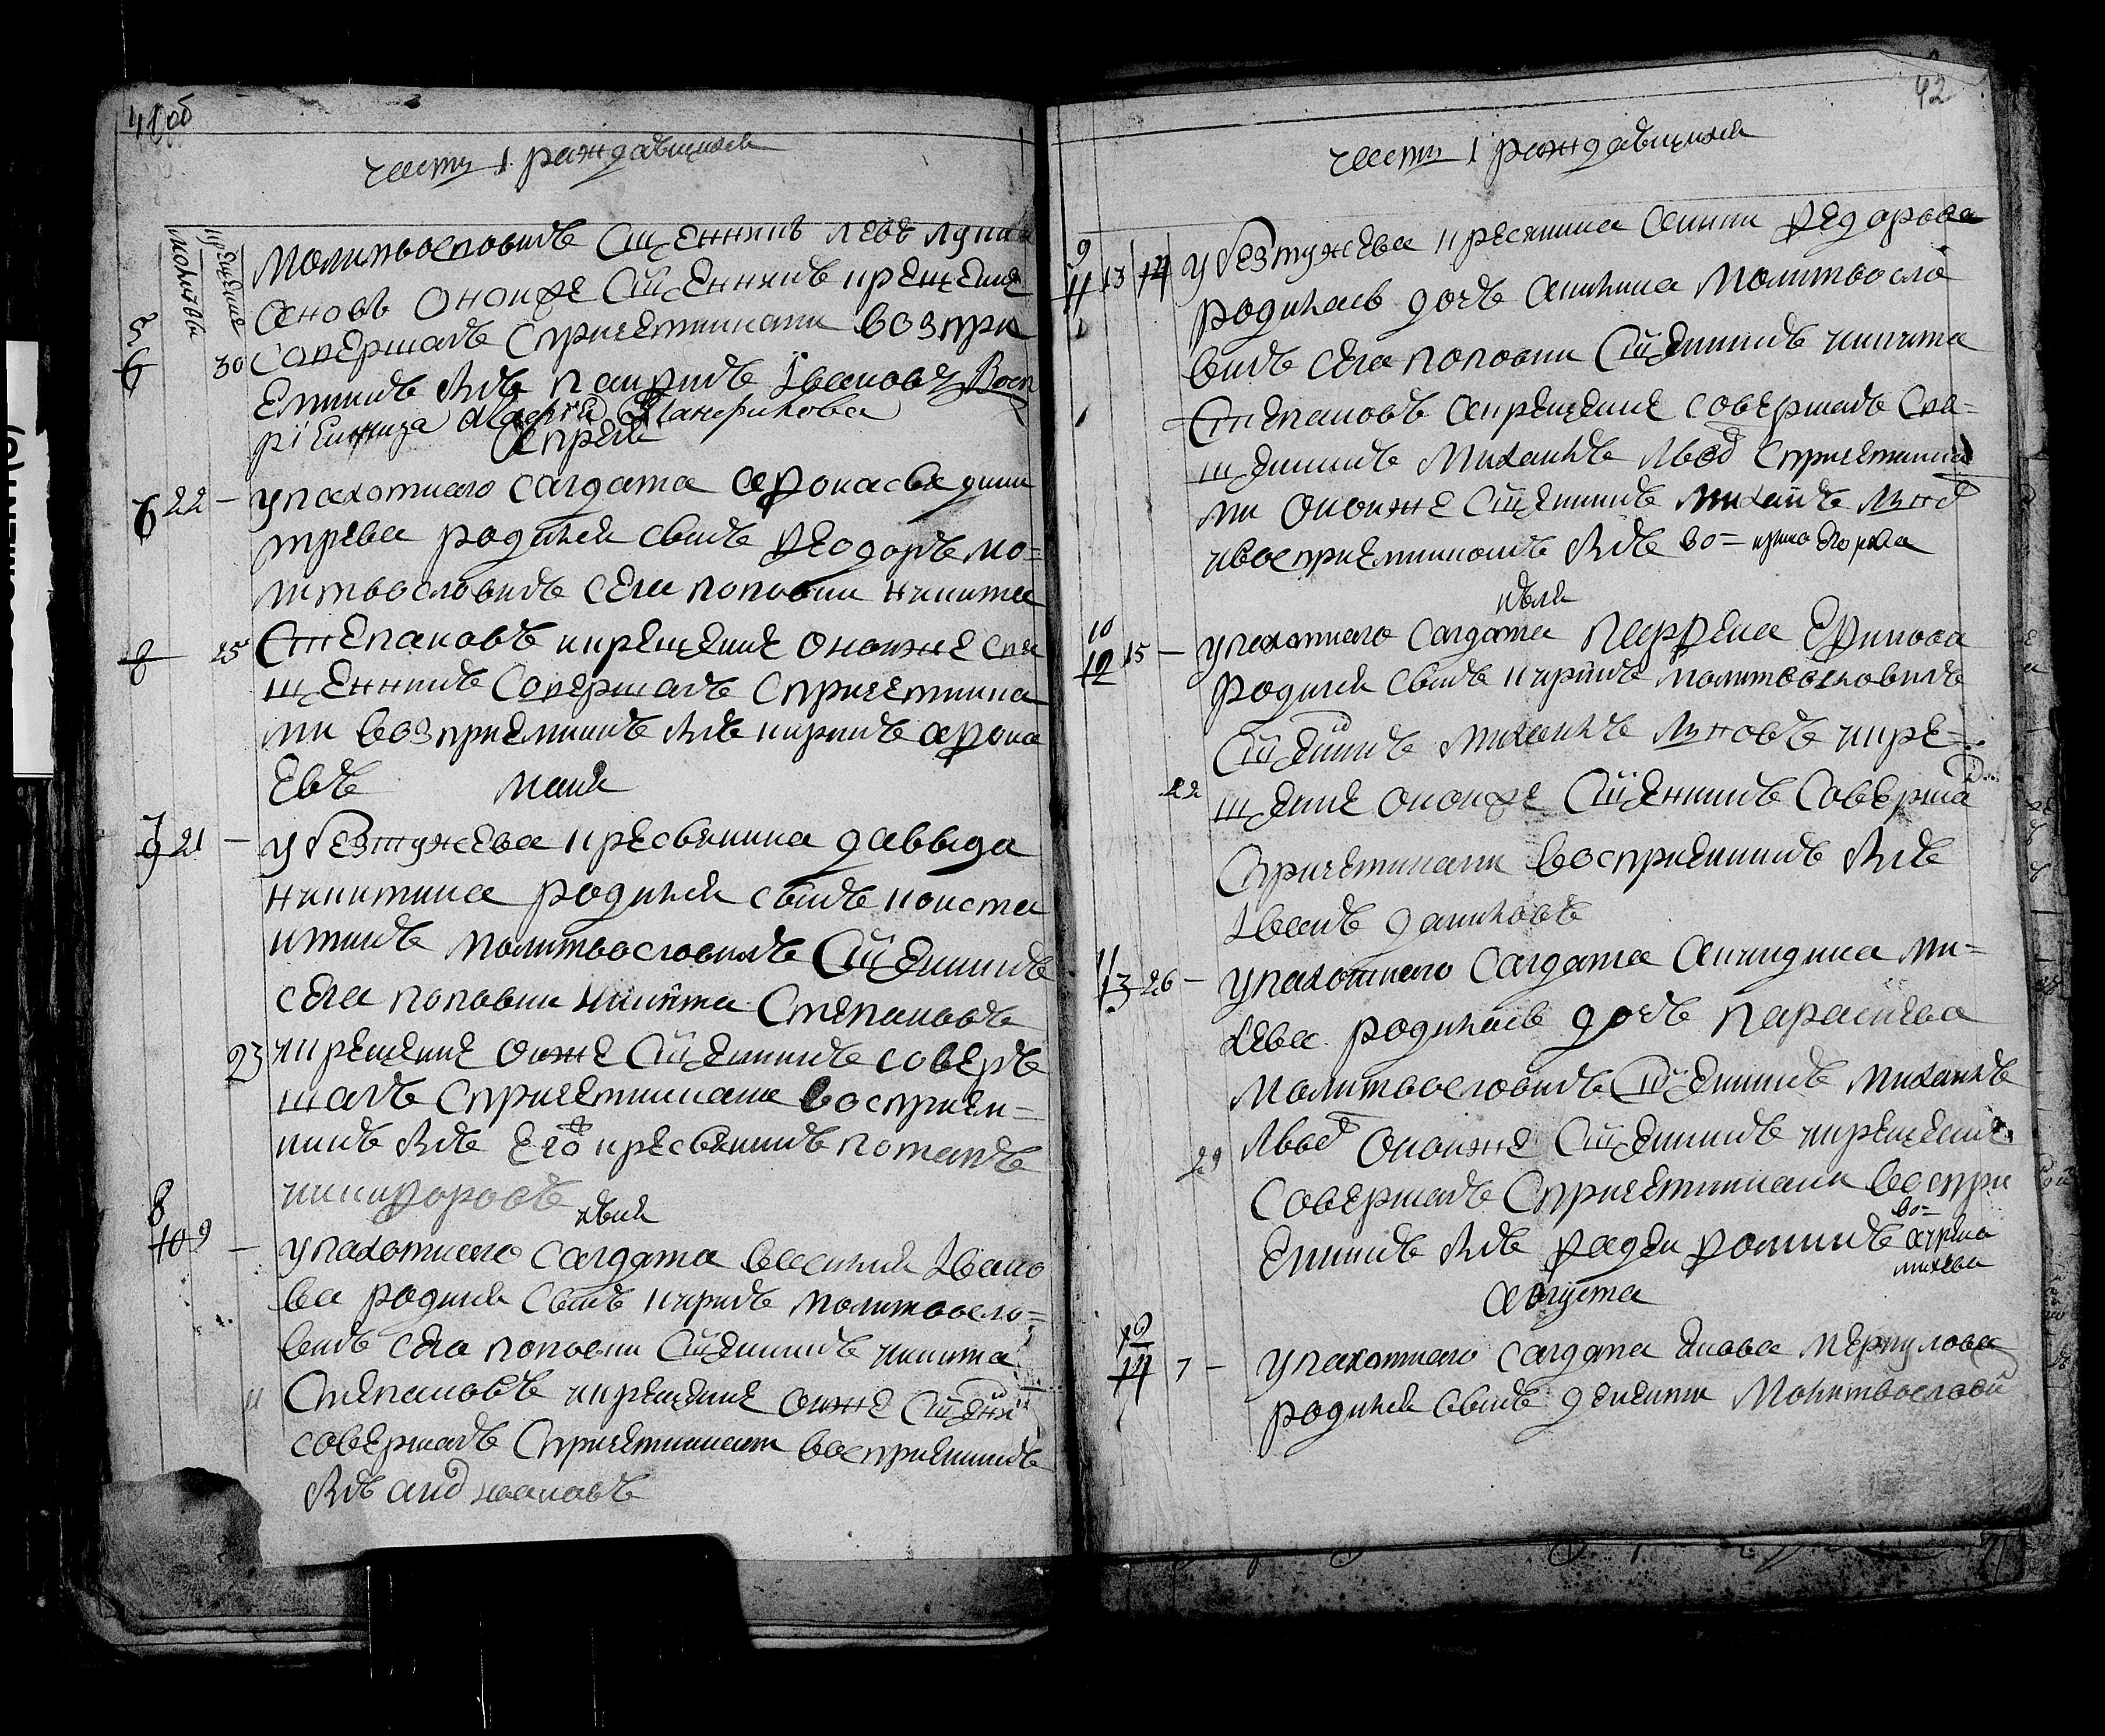 41 об
часть 1 раждавшихся
молитвы
крещение
молитвословилъ Сщенникъ левъ лукиа
Сановъ оной же Сщенникъ крещение
5
6 30 Совершалъ Спричетниками возпри
емникъ былъ панфилъ Ивановъ Восп
риемница Панфилова
Апреля
6 22 – упахотнаго салдата афонасья дми
трева родился сынъ феодоръ мо=
литвословилъ села поповки никита
8 25 Степановъ икрещение оной же свя
щенникъ Совершалъ Спричетника
ми возприемникъ былъ кирилъ афона
евъ маия
7
9 21 – у безтужева кресьянина давыда
никитина родился сынъ конста
нтинъ молитвословилъ Сщенникъ
села поповки никита Степановъ
23 икрещение онже Сщенникъ соверъ
шалъ Спричетниками восприем=
никъ былъ его же кресьянинъ потапъ
никифоровъ
июня
8
10 9 – упахотнаго салдата василия Ивано
ва родился сынъ кирилъ молитвосло=
вилъ села поповки Сщенникъ никита
11 Степановъ икрещение онже Сщенни
совершалъ Спричетниками восприемникъ
былъ ивановъ
42
часть 1 раждавшихся
9
11 13 14 у безтужева кресянина федорова
родилась дочь акилина молитвосло
вилъ села поповки Сщенникъ никита
Степановъ акрещение совершалъ Свя=
щенникъ михаилъ львов Спричетника
ми онойже Сщенникъ михаилъ
ивосприемникомъ былъ
июля
10
12 15 – упахотнаго салдата парфена Ефимова
родился сынъ кирилъ молитвословилъ
Сщенникъ михаилъ львовъ икре=
22 щение онойже Сщенникъ Соверша
Спричетниками восприемникъ былъ
Иванъ даниловъ
11
13 26 – упахотнаго салдата ми=
хева родилась дочь параскева
молитвословилъ Сщенникъ михаилъ
29 львов онойже Сщенникъ икрещение
совершалъ Спричетниками воспри
емникъ былъ фадеи фоминъ
михева
августа
12
14 7 – упахотнаго салдата якова меркулова
родился сынъ никита молитвослови